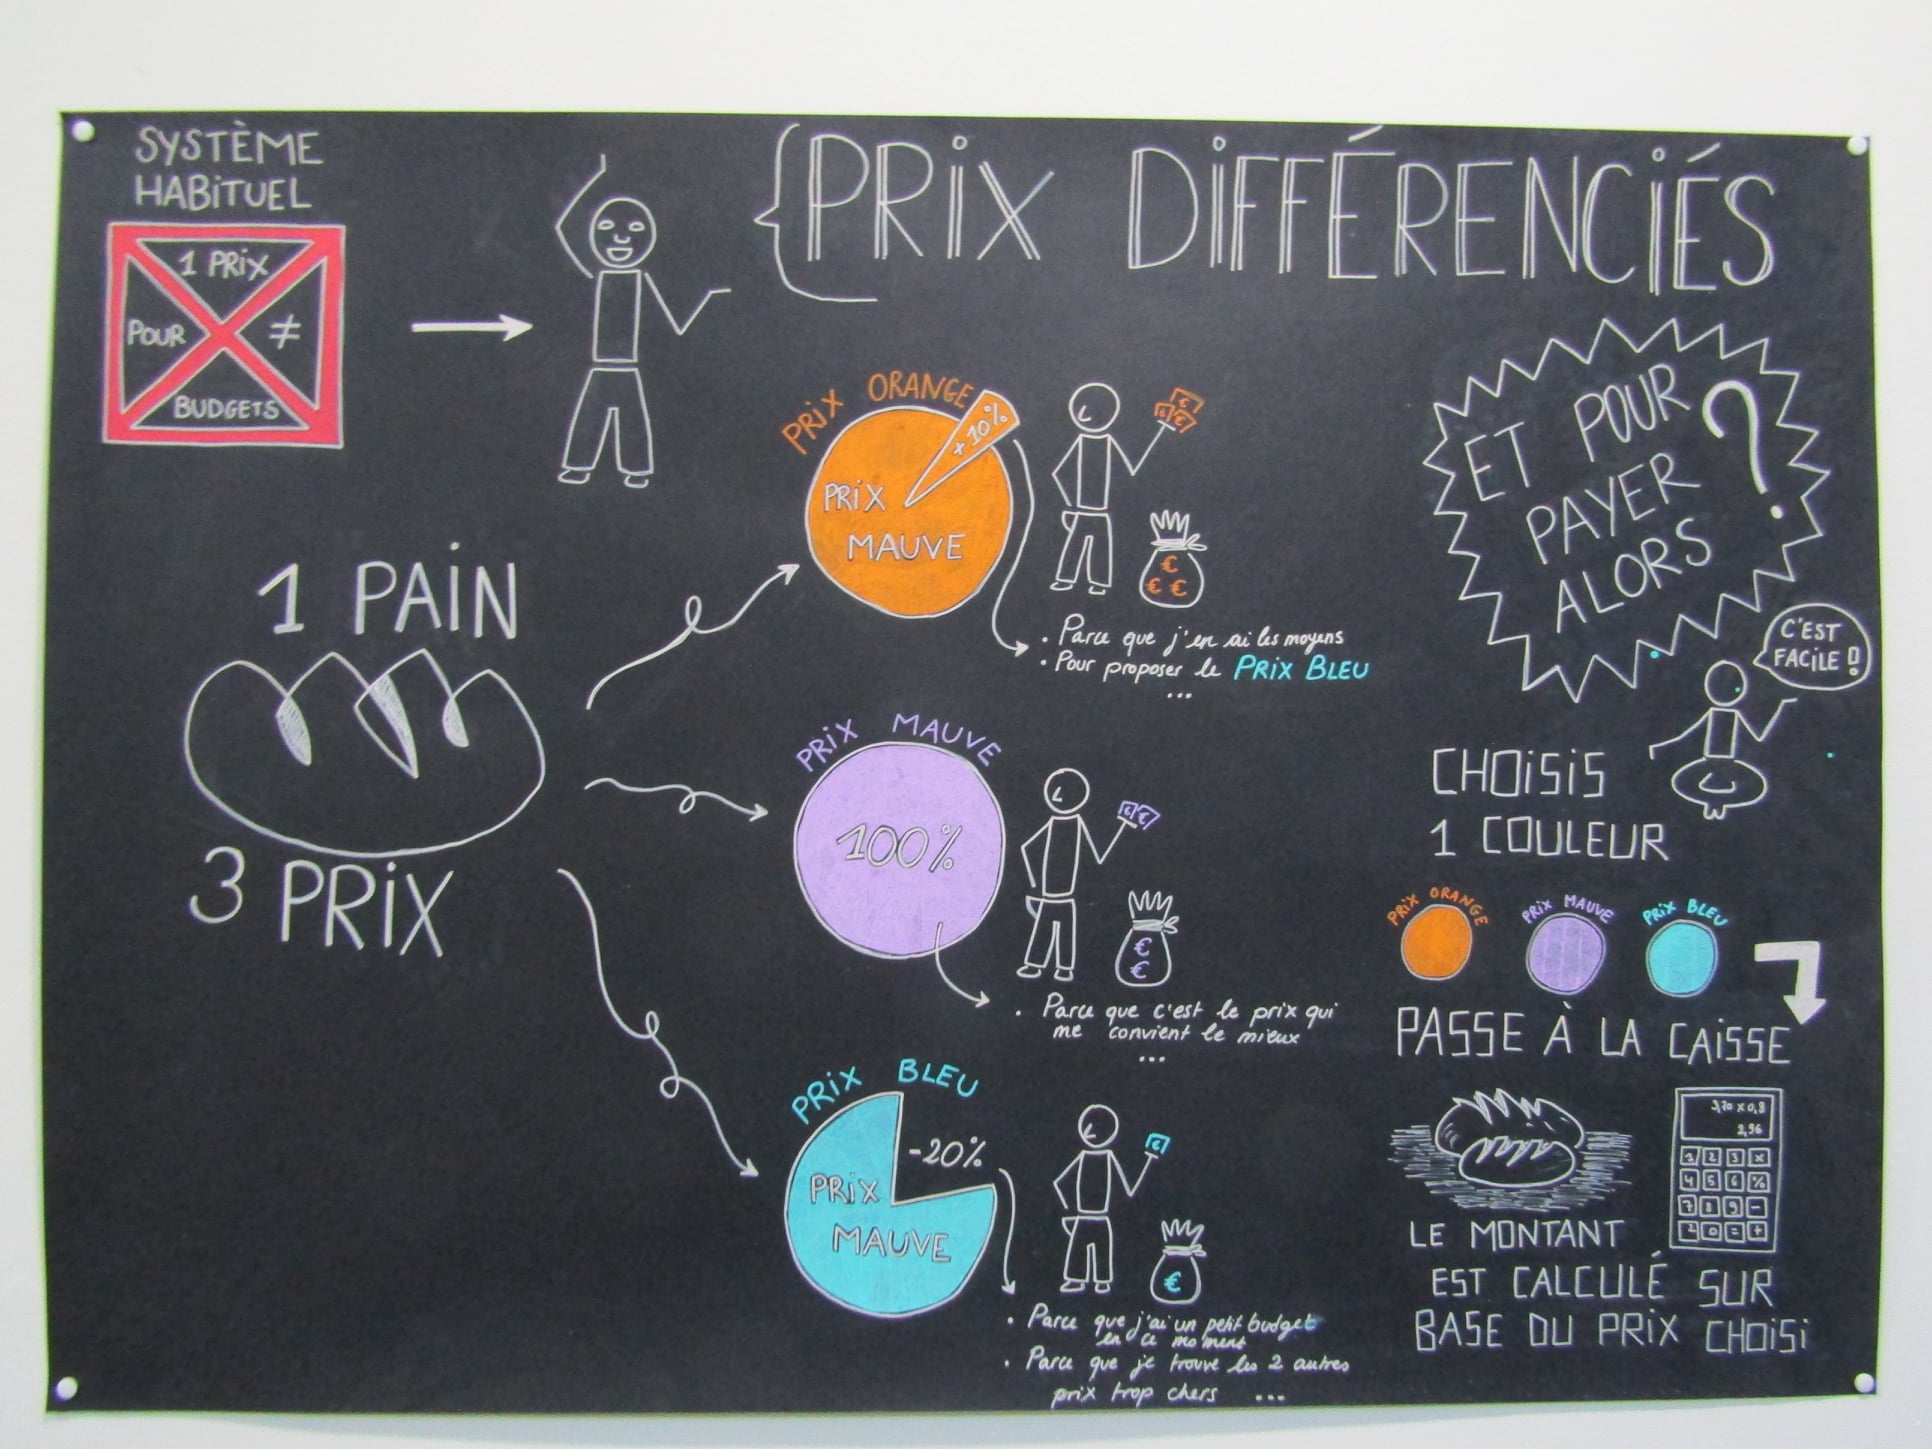 SYSTÈME
HABITUEL
1 PRIX
POUR ≠
BUDGETS
PRIX DIFFÉRENCIÉS
1 PAIN
3 PRIX
PRIX ORANGE
+10%
PRIX
MAUVE
€
€ €
€
€ €
• Parce que j'en ai les moyens
• Pour proposer le PRIX BLEU
...
PRIX MAUVE
100%
€ €
€
€
• Parce que c'est le prix qui
me convient le mieux
...
PRIX BLEU
-20%
PRIX
MAUVE
€
€
• Parce que j'ai un petit budget
en ce moment
• Parce que je trouve les 2 autres
prix trop chers ...
ET POUR
PAYER
ALORS ?
C'EST
FACILE !
CHOISIS
1 COULEUR
PRIX ORANGE PRIX MAUVE PRIX BLEU
PASSE À LA CAISSE
3,70 x 0,8
2,96
1 2 3 x
4 5 6 %
7 8 9 -
0 = +
LE MONTANT
EST CALCULÉ SUR
BASE DU PRIX CHOISI